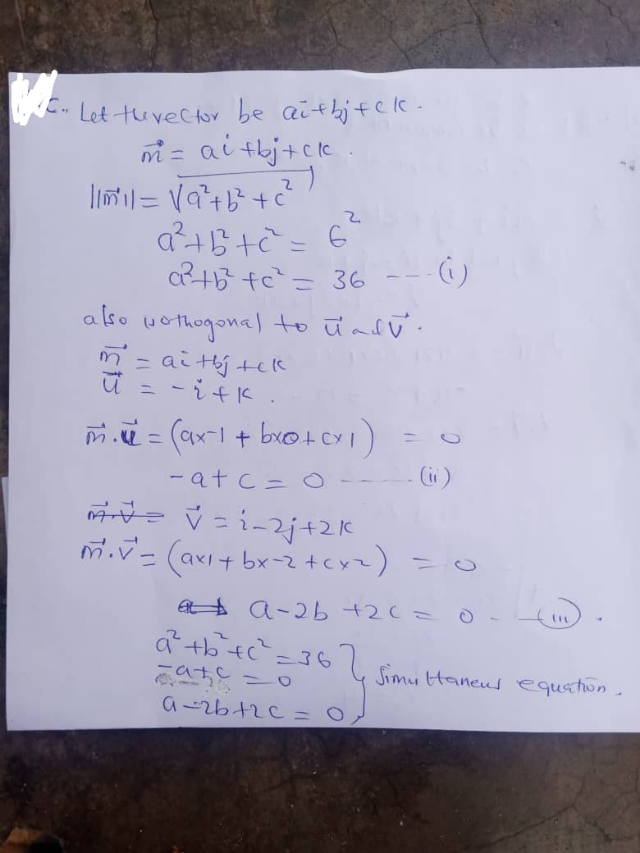 C. Let the vector be ai+bj+ck.
m⃗ = ai+bj+ck.
||m⃗|| = √(a²+b²+c²)
a²+b²+c² = 6²
a²+b²+c² = 36 ---- (i)
also orthogonal to u⃗ and v⃗.
m⃗ = ai+bj+ck
u⃗ = -i+k.
m⃗.u⃗ = (ax-1 + bx0+cx1) = 0
-a+c = 0 ------- (ii)
m⃗.v⃗ = v⃗ = i-2j+2k
m⃗.v⃗ = (ax1+bx-2+cx2) = 0
a-2b+2c = 0 - - (iii).
a²+b²+c² = 36
-a+c = 0 } Simultaneus equation.
a-2b+2c = 0